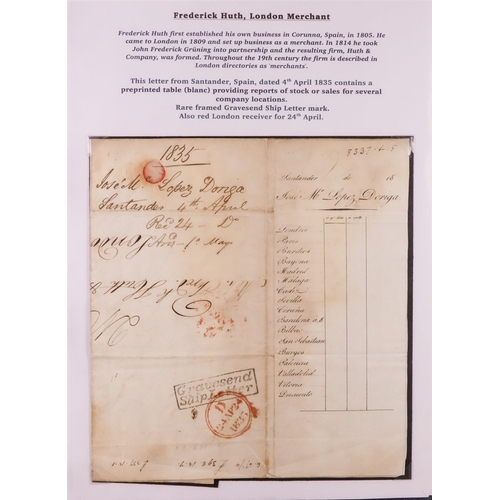 Frederick Huth, London Merchant
Frederick Huth first established his own business in Corunna, Spain, in 1805. He
came to London in 1809 and set up business as a merchant. In 1814 he took
John Frederick Grüning into partnership and the resulting firm, Huth &
Company, was formed. Throughout the 19th century the firm is described in
London directories as 'merchants'.
This letter from Santander, Spain, dated 4th April 1835 contains a
preprinted table (blanc) providing reports of stock or sales for several
company locations.
Rare framed Gravesend Ship Letter mark.
Also red London receiver for 24th April.
1835
José M Lopez Doriga
Santander 4th April
Red 24 - Do
Ansd 1o May
Gravesend
Ship Letter
D
24 AP 24
1835
Santander de 18
José Ma Lopez Doriga
Londres
Paris
Burdeos
Bayona
Madrid
Malaga
Cadiz
Sevilla
Coruña
Barcelona
Bilbao
San Sebastian
Burgos
Palencia
Valladolid
Vitoria
Descuento